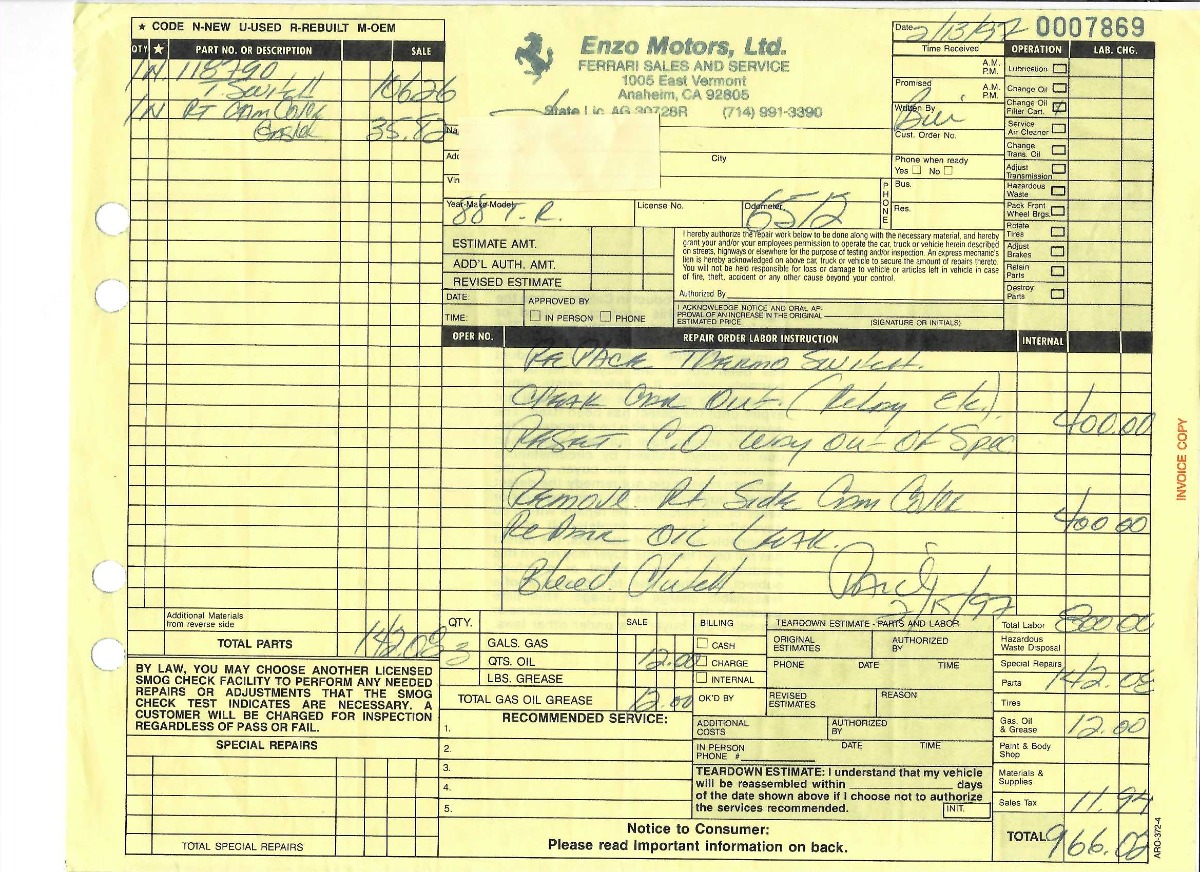 ★ CODE N-NEW U-USED R-REBUILT M-OEM
QTY ★ PART NO. OR DESCRIPTION SALE
1 N 118790
T. Switch 106 26
1 N Rt Cam Cover
Gasket 35.82
Enzo Motors, Ltd.
FERRARI SALES AND SERVICE
1005 East Vermont
Anaheim, CA 92805
State Lic AG 30728R (714) 991-3390
Date 2/13/97 0007869
Time Received A.M. P.M.
Promised A.M. P.M.
Written By Bill
Cust. Order No.
Phone when ready
Yes No
PHONE
Bus.
Res.
City
Vin
Year-Make-Model 88 T.R.
License No.
Odometer 6512
OPERATION LAB. CHG.
Lubrication
Change Oil
Change Oil Filter Cart.
Service Air Cleaner
Change Trans. Oil
Adjust Transmission
Hazardous Waste
Pack Front Wheel Brgs.
Rotate Tires
Adjust Brakes
Retain Parts
Destroy Parts
ESTIMATE AMT.
ADD'L AUTH. AMT.
REVISED ESTIMATE
DATE: APPROVED BY
TIME: IN PERSON PHONE
I hereby authorize the repair work below to be done along with the necessary material, and hereby
grant your and/or your employees permission to operate the car, truck or vehicle herein described
on streets, highways or elsewhere for the purpose of testing and/or inspection. An express mechanic's
lien is hereby acknowledged on above car, truck or vehicle to secure the amount of repairs thereto.
You will not be held responsible for loss or damage to vehicle or articles left in vehicle in case
of fire, theft, accident or any other cause beyond your control.
Authorized By
I ACKNOWLEDGE NOTICE AND ORAL AP-
PROVAL OF AN INCREASE IN THE ORIGINAL
ESTIMATED PRICE. (SIGNATURE OR INITIALS)
OPER NO. REPAIR ORDER LABOR INSTRUCTION INTERNAL
RePlace Thermo Switch.
Check Car Out. (Relay Etc).
400.00
Reset. C.O way out of Spec
Remove Rt Side Cam Cover
400 00
Repair OIL Leak.
Bleed Clutch. Paid
2/15/97
INVOICE COPY
Additional Materials
from reverse side
TOTAL PARTS 142.08
BY LAW, YOU MAY CHOOSE ANOTHER LICENSED
SMOG CHECK FACILITY TO PERFORM ANY NEEDED
REPAIRS OR ADJUSTMENTS THAT THE SMOG
CHECK TEST INDICATES ARE NECESSARY. A
CUSTOMER WILL BE CHARGED FOR INSPECTION
REGARDLESS OF PASS OR FAIL.
SPECIAL REPAIRS
TOTAL SPECIAL REPAIRS
QTY. SALE
GALS. GAS
3 QTS. OIL 12.00
LBS. GREASE
TOTAL GAS OIL GREASE 12.00
RECOMMENDED SERVICE:
1.
2.
3.
4.
5.
BILLING
CASH
CHARGE
INTERNAL
OK'D BY
TEARDOWN ESTIMATE - PARTS AND LABOR
ORIGINAL ESTIMATES AUTHORIZED BY
PHONE DATE TIME
REVISED ESTIMATES REASON
ADDITIONAL COSTS AUTHORIZED BY
IN PERSON DATE TIME
PHONE #
TEARDOWN ESTIMATE: I understand that my vehicle
will be reassembled within days
of the date shown above if I choose not to authorize
the services recommended. INIT.
Total Labor 800 00
Hazardous Waste Disposal
Special Repairs
Parts 142.08
Tires
Gas. Oil & Grease 12.00
Paint & Body Shop
Materials & Supplies
Sales Tax 11.94
TOTAL 966.02
Notice to Consumer:
Please read Important information on back.
ARO-372-4